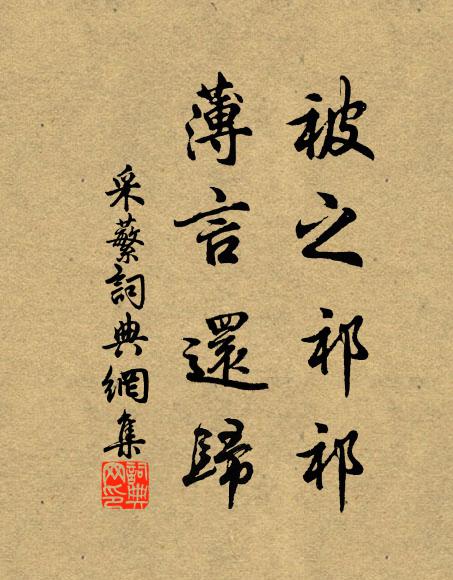 被之祁祁
薄言還歸
采蘩詞典網集
詞典網印